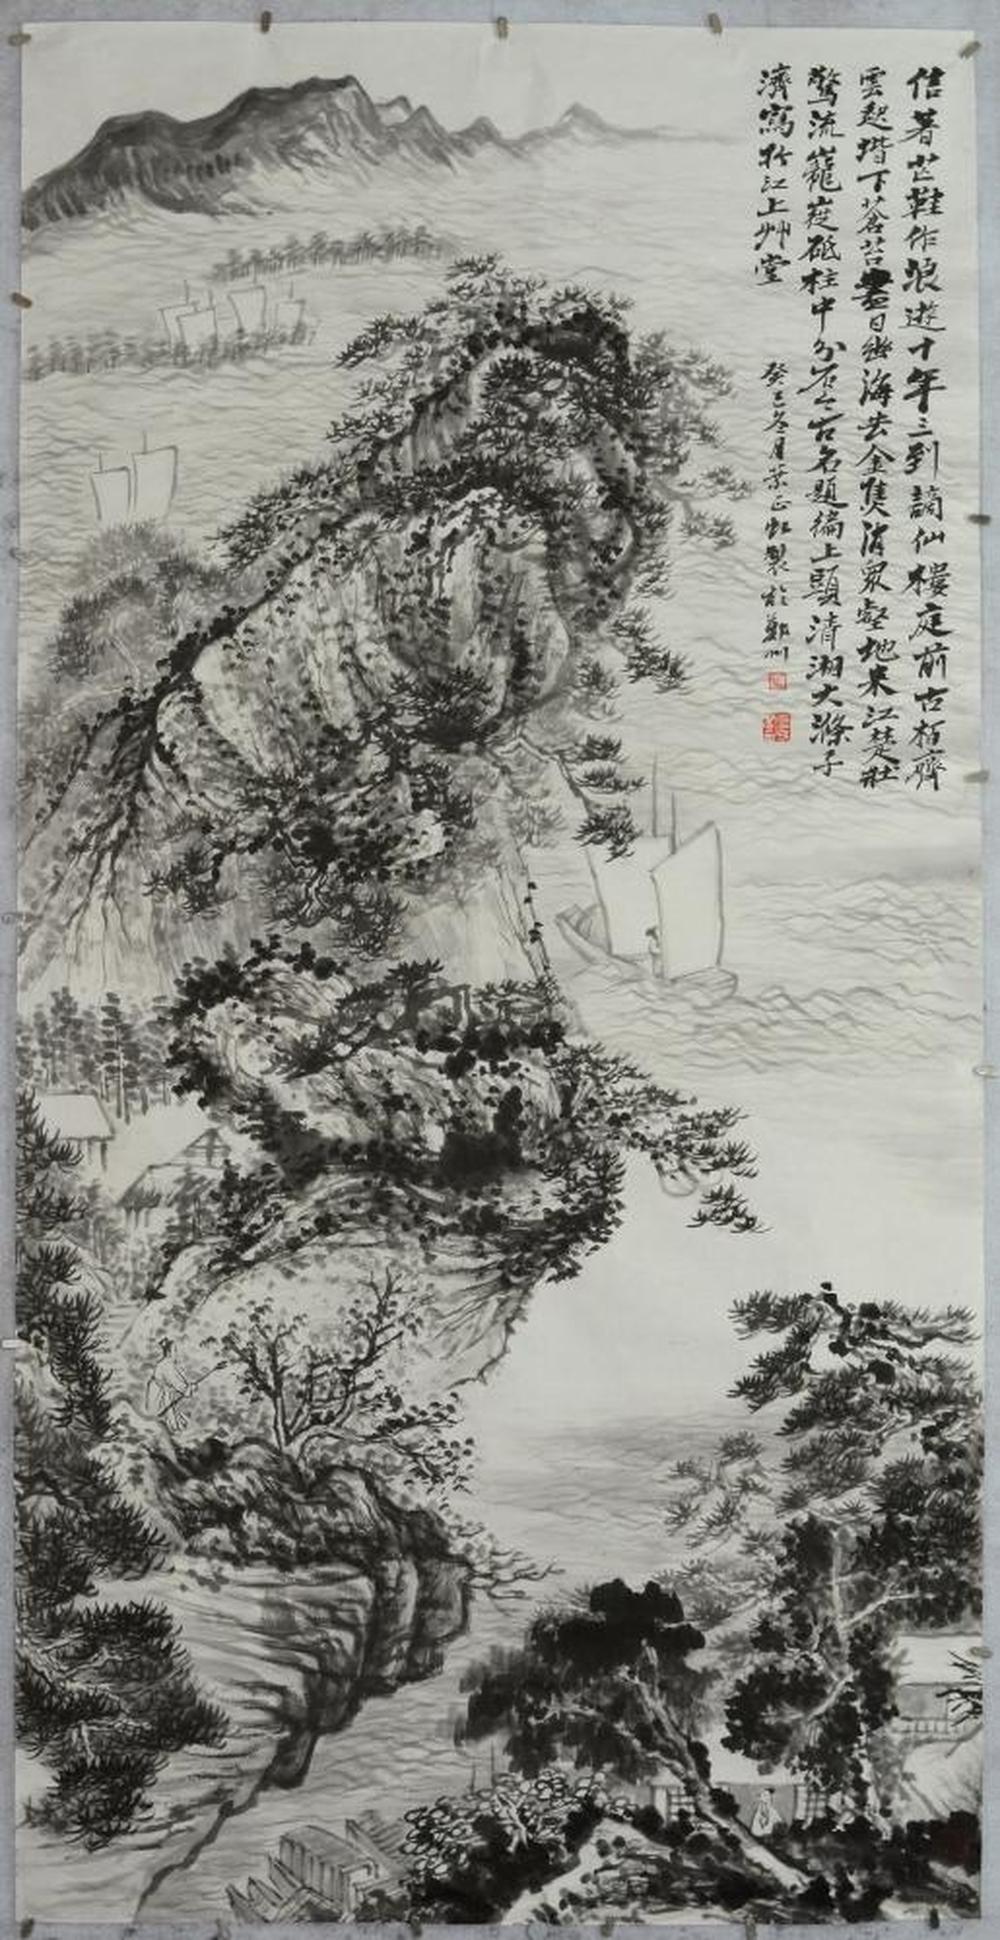 信著芒鞋作浪遊十年三到謫仙樓庭前古栢齊
雲起堦下蒼苔盡日幽海去金焦滄眾壑地来江楚壯
驚流巃嵸砥柱中分處今古名題徧上頭清湘大滌子
濟寫於江上艸堂
癸巳冬月葉正虹製於鄭州